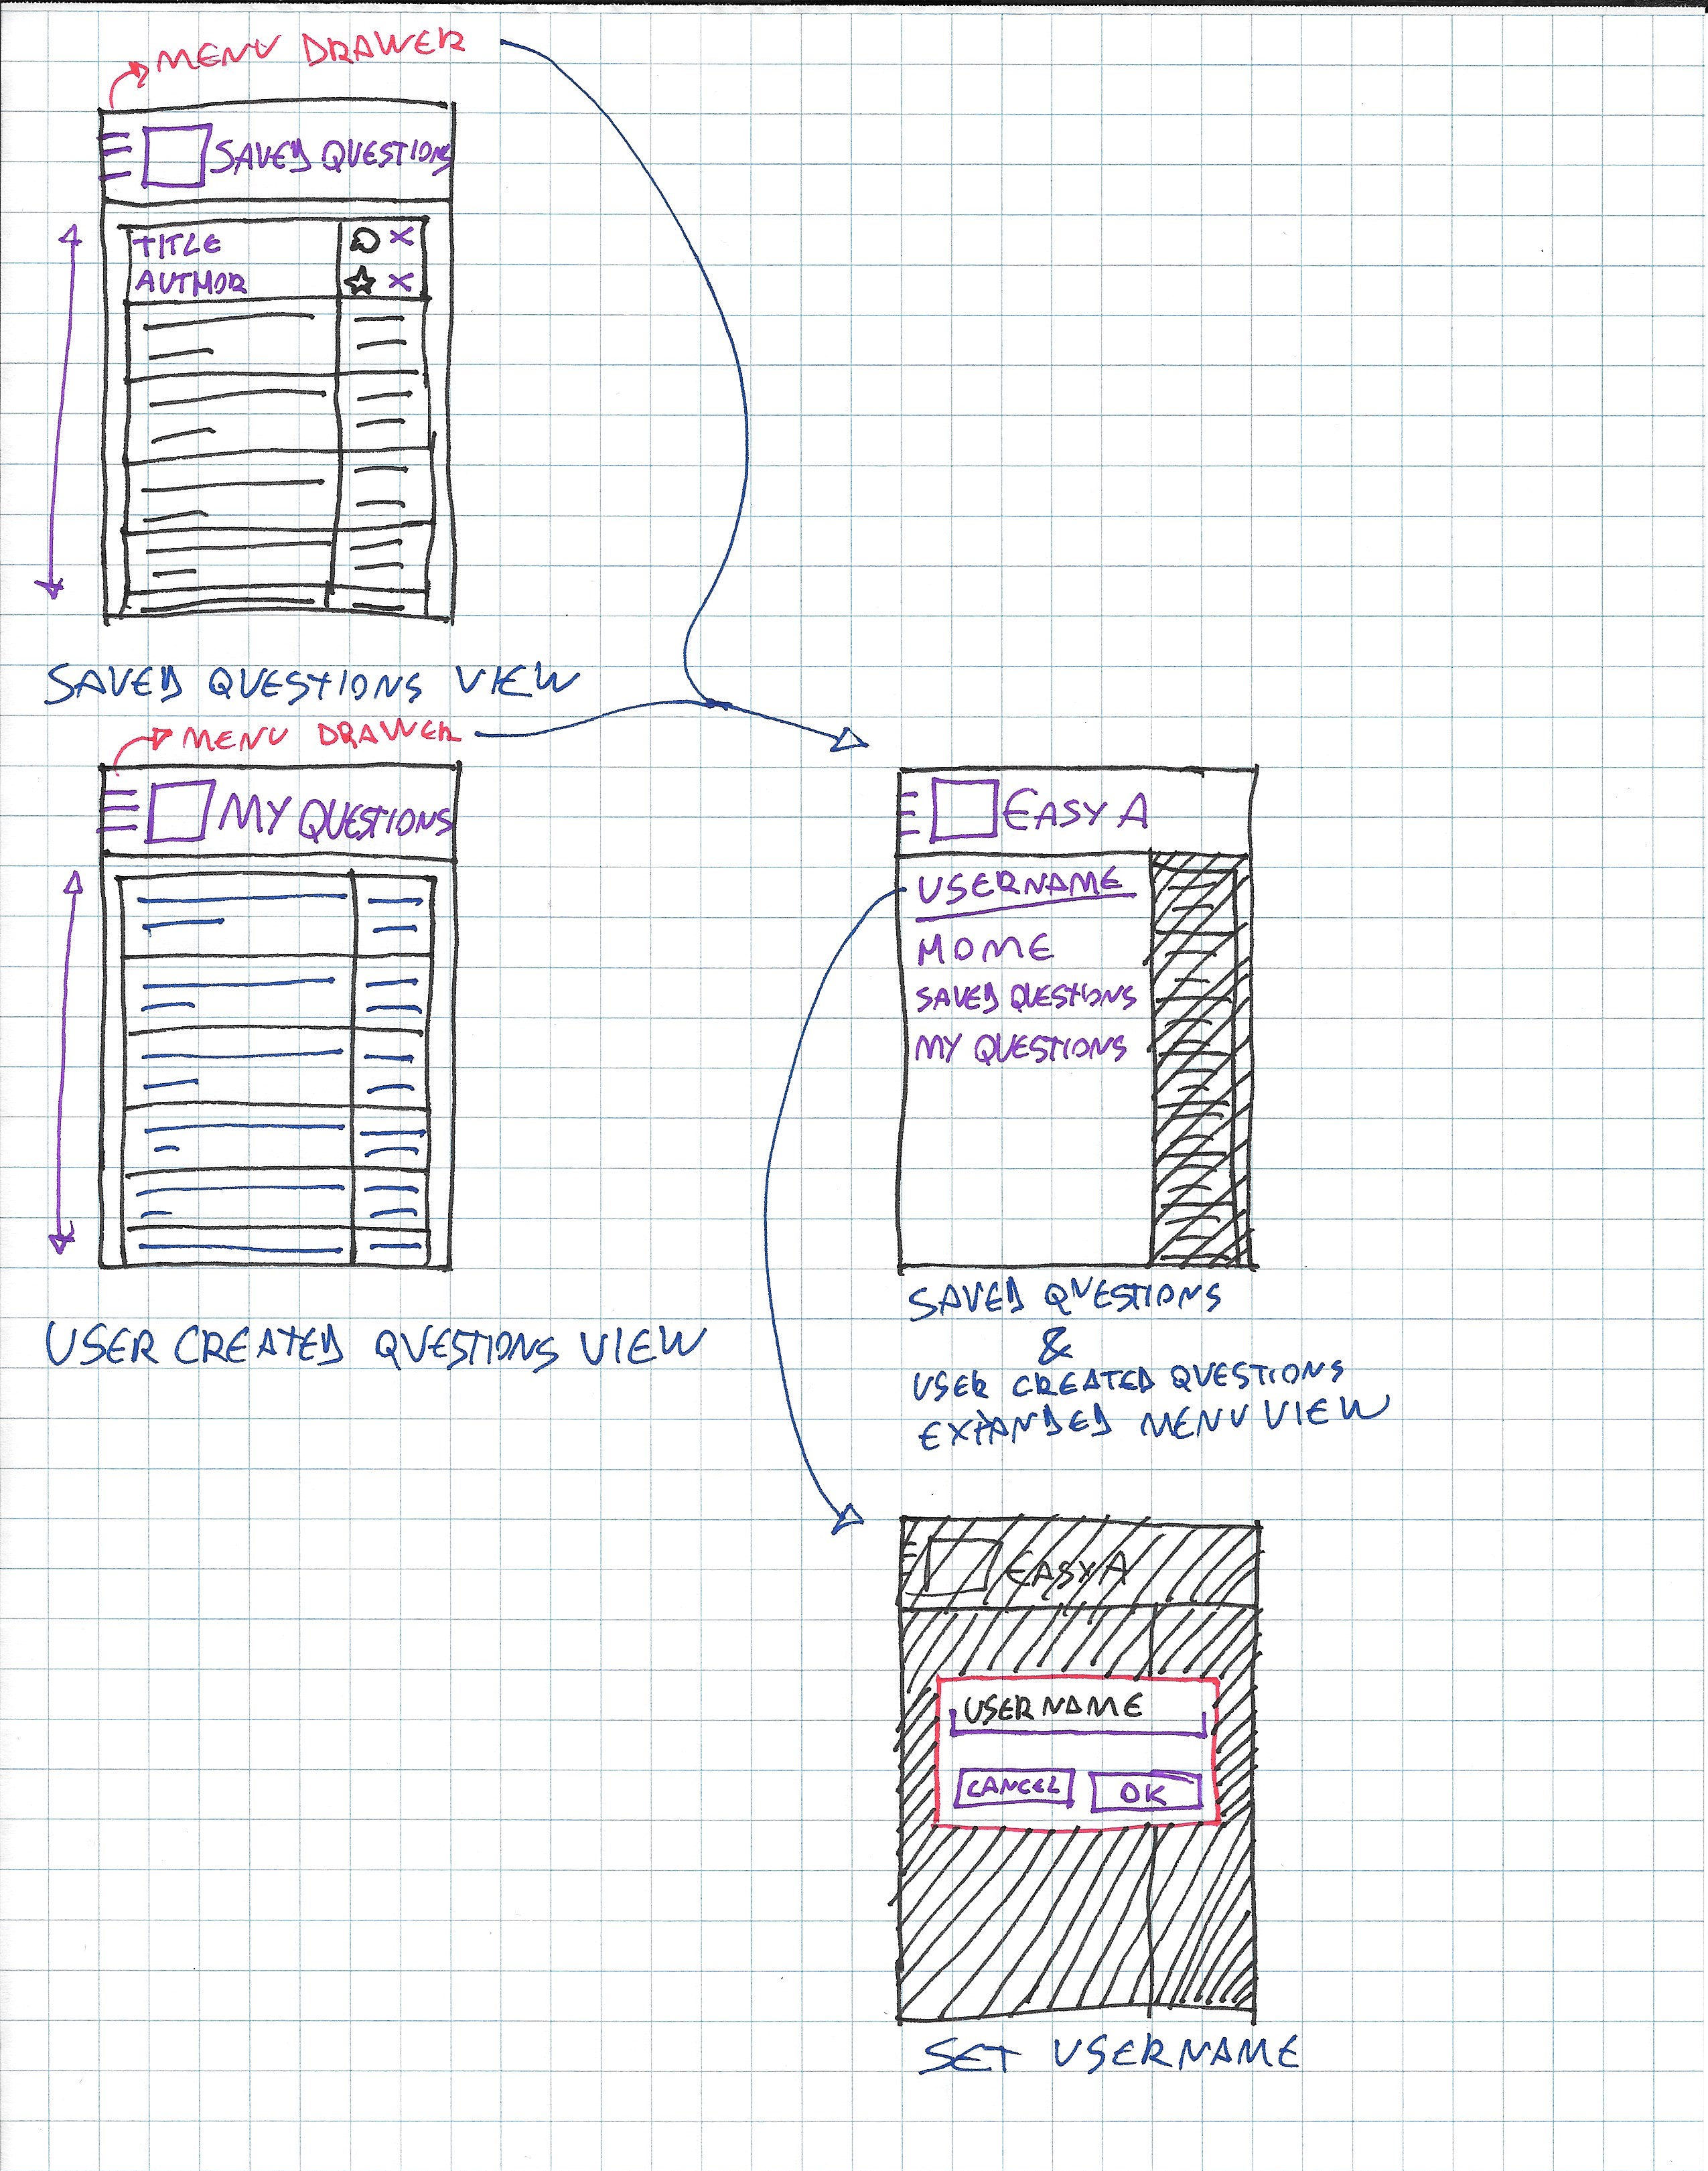 MENU DRAWER
SAVED QUESTIONS
TITLE X
AUTHOR X
SAVED QUESTIONS VIEW
MENU DRAWER
MY QUESTIONS
USER CREATED QUESTIONS VIEW
EASY A
USERNAME
HOME
SAVED QUESTIONS
MY QUESTIONS
SAVED QUESTIONS
&
USER CREATED QUESTIONS
EXPANDED MENU VIEW
EASY A
USERNAME
CANCEL OK
SET USERNAME